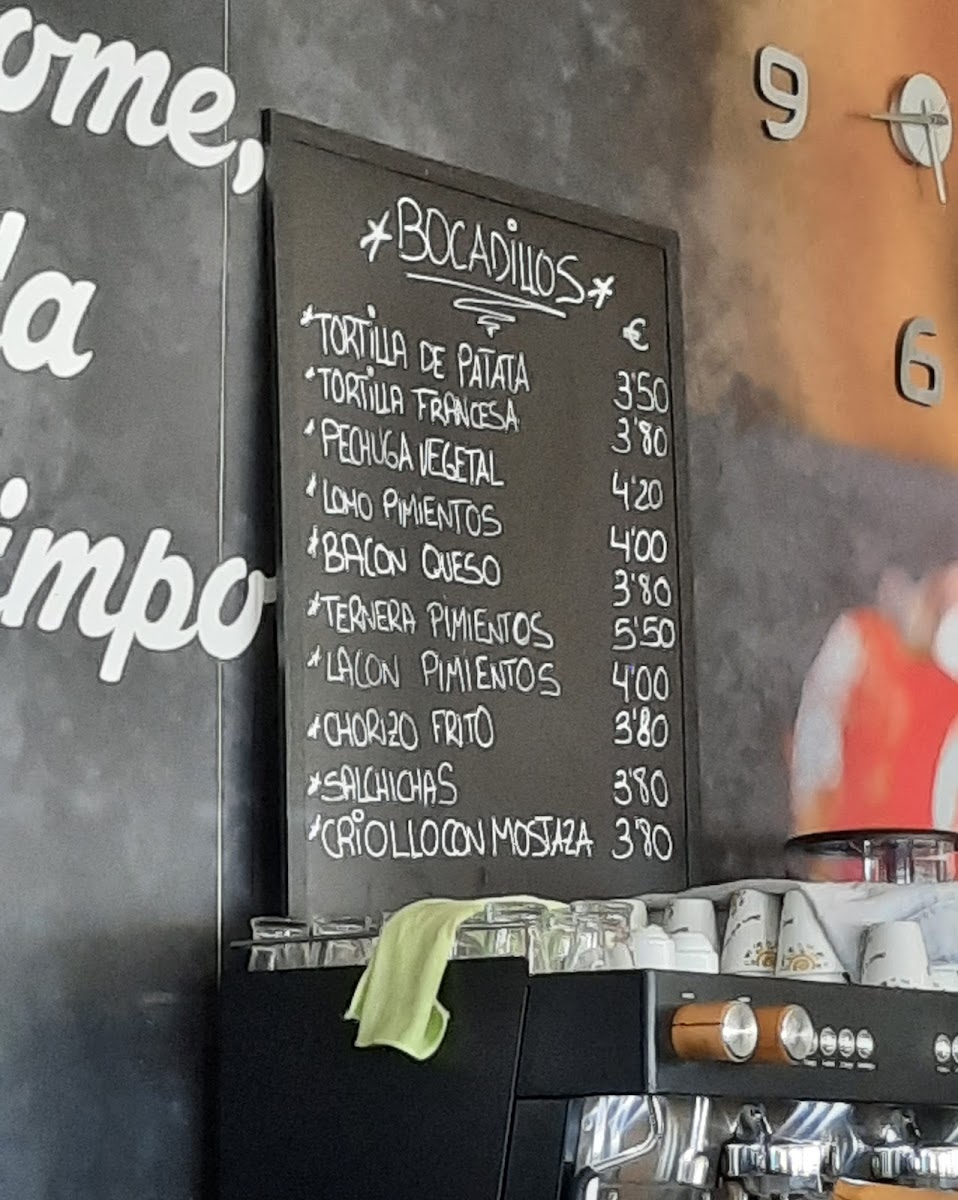 ome,
la
impo
9
6
*BOCADiLLOS*
€
*TORTiLLA DE PATATA 3'50
*TORTILLA FRANCESA 3'80
*PECHUGA VEGETAL 4'20
*LOMO PIMIENTOS 4'00
*BACON QUESO 3'80
*TERNERA PIMIENTOS 5'50
*LACON PIMIENTOS 4'00
*CHORIZO FRITO 3'80
*SALCHICHAS 3'80
*CRiOLLO CON MOSTAZA 3'80